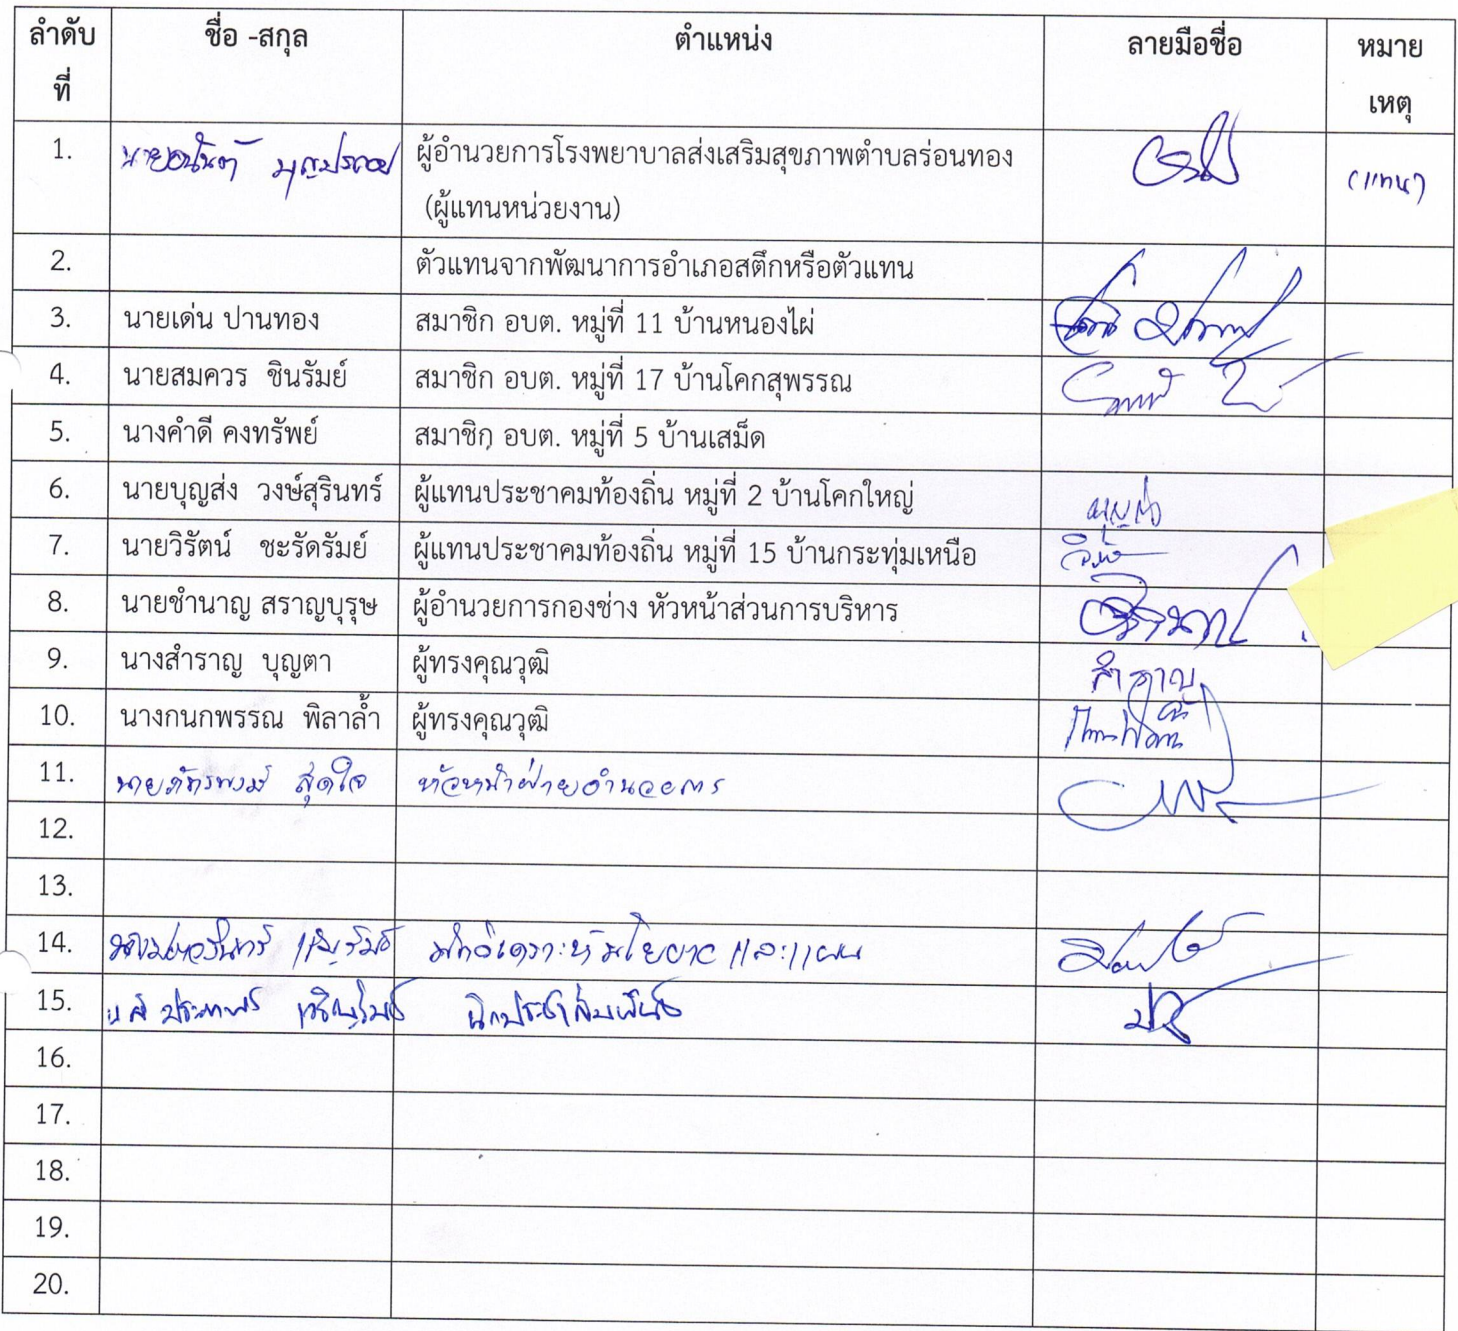 ลำดับที่ ชื่อ -สกุล ตำแหน่ง ลายมือชื่อ หมายเหตุ
1. ผู้อำนวยการโรงพยาบาลส่งเสริมสุขภาพตำบลร่อนทอง (แทน)
(ผู้แทนหน่วยงาน)
2. ตัวแทนจากพัฒนาการอำเภอสตึกหรือตัวแทน
3. นายเด่น ปานทอง สมาชิก อบต. หมู่ที่ 11 บ้านหนองไผ่
4. นายสมควร ชินรัมย์ สมาชิก อบต. หมู่ที่ 17 บ้านโคกสุพรรณ
5. นางคำดี คงทรัพย์ สมาชิก อบต. หมู่ที่ 5 บ้านเสม็ด
6. นายบุญส่ง วงษ์สุรินทร์ ผู้แทนประชาคมท้องถิ่น หมู่ที่ 2 บ้านโคกใหญ่ บุญส่ง
7. นายวิรัตน์ ชะรัดรัมย์ ผู้แทนประชาคมท้องถิ่น หมู่ที่ 15 บ้านกระทุ่มเหนือ
8. นายชำนาญ สราญบุรุษ ผู้อำนวยการกองช่าง หัวหน้าส่วนการบริหาร
9. นางสำราญ บุญตา ผู้ทรงคุณวุฒิ สำราญ
10. นางกนกพรรณ พิลาล้ำ ผู้ทรงคุณวุฒิ
11. นายภัทรพงษ์ สุดใจ หัวหน้าฝ่ายอำนวยการ
12.
13.
14. นักวิเคราะห์นโยบายและแผน
15. นักประชาสัมพันธ์
16.
17.
18.
19.
20.